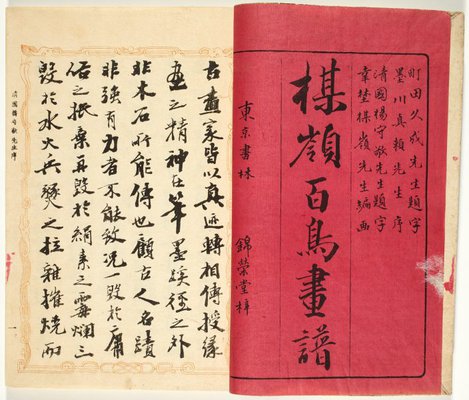 町田久成先生題字
墨川真頼先生序
清國楊守敬先生題字
幸埜楳嶺先生編画
楳嶺百鳥畫譜
東京書林 錦榮堂梓
古畫家皆以真迹轉相傳授緣
畫之精神在筆墨蹊徑之外
非木石所能傳也顧古人名蹟
非強有力者不能致況一毀於庸
俗之抵棄再毀於絹素之霉爛三
毀於水火兵燹之拉雜摧燒而
清國楊守敬先生序 一